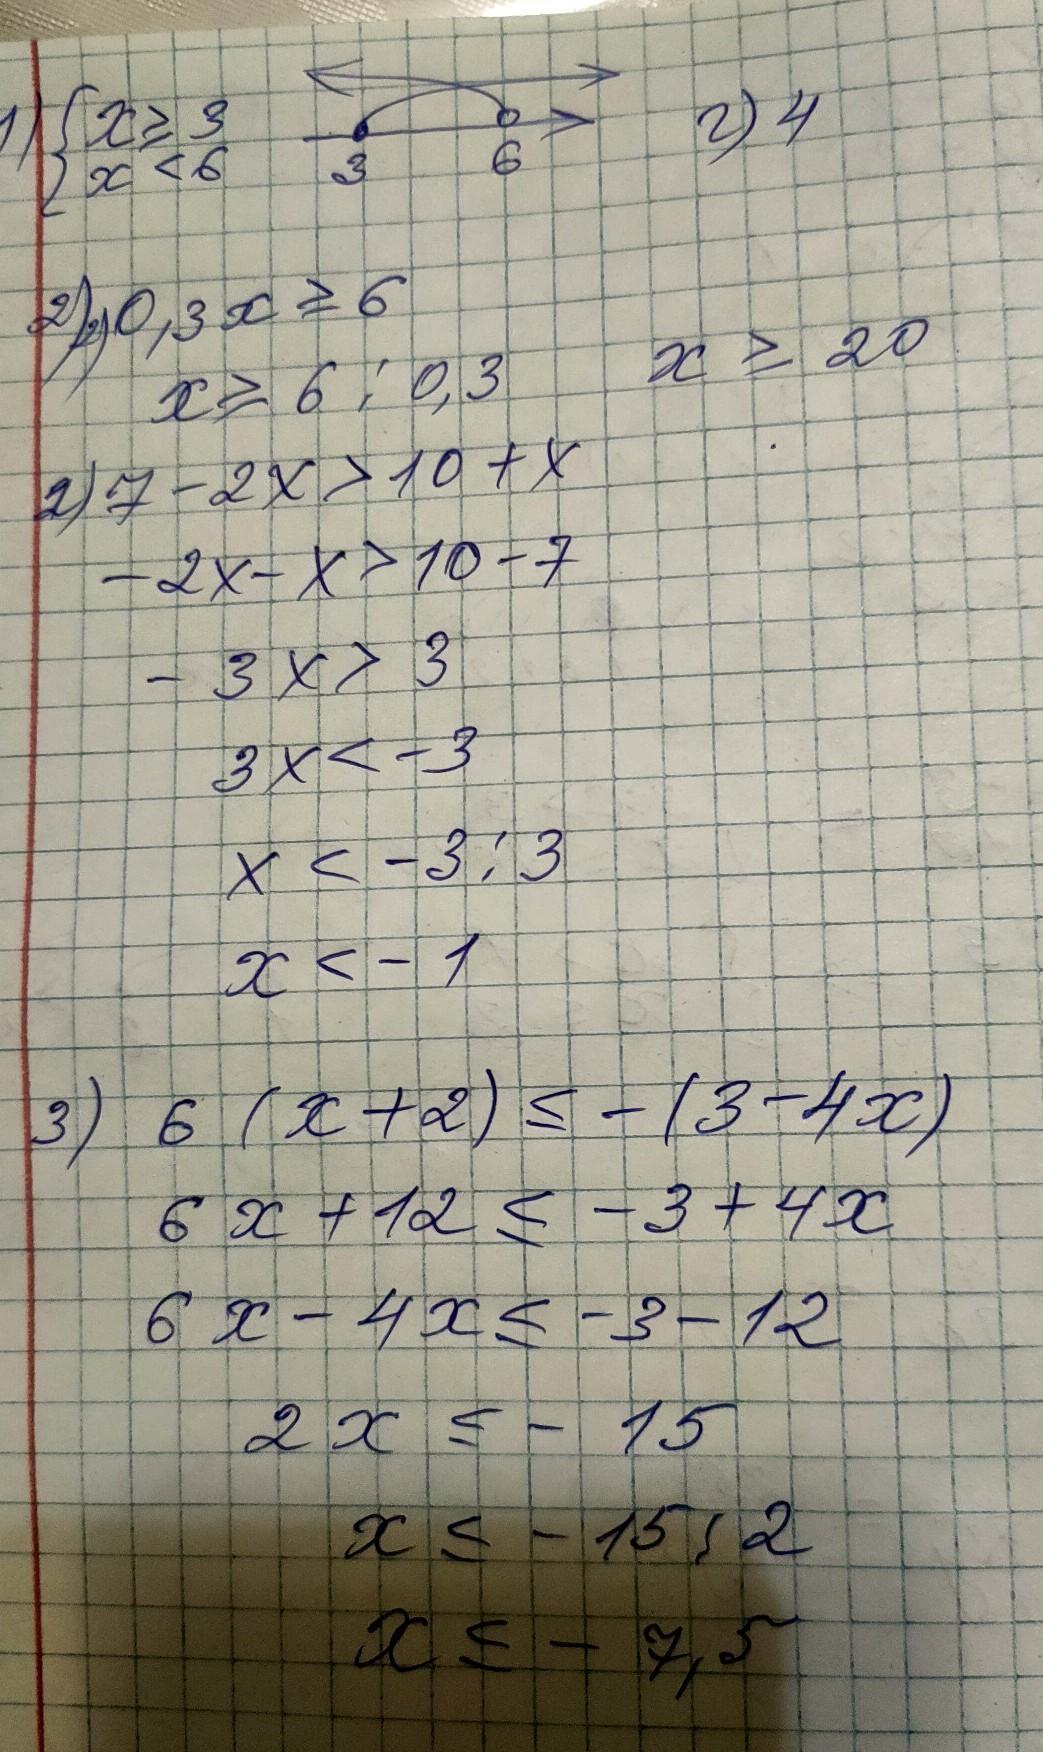 1) { x ≥ 3
x < 6
3 6
г) 4
2) 0,3x ≥ 6
x ≥ 6 : 0,3 x ≥ 20
2) 7 - 2x > 10 + x
- 2x - x > 10 - 7
- 3x > 3
3x < - 3
x < - 3 : 3
x < - 1
3) 6 (x + 2) ≤ - (3 - 4x)
6x + 12 ≤ - 3 + 4x
6x - 4x ≤ - 3 - 12
2x ≤ - 15
x ≤ - 15 : 2
x ≤ - 7,5